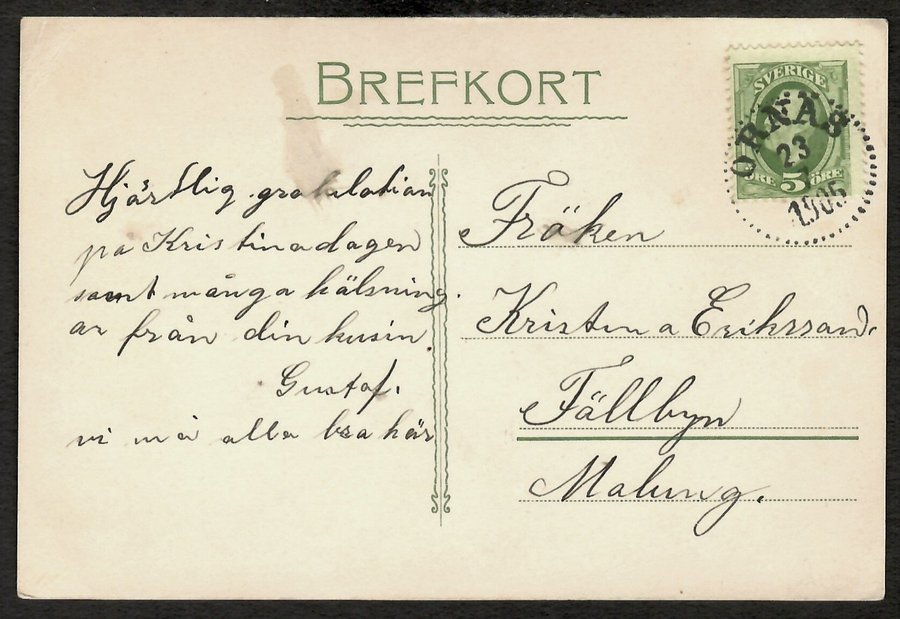 BREFKORT
SVERIGE
ORNÄS
23
1905
5 ÖRE
Hjärtlig gratulation
på Kristinadagen
samt många hälsning
ar från din kusin
Gustaf.
vi må alla bra här
Fröken
Kristina Erikssand.
Fällbyn
Malung.